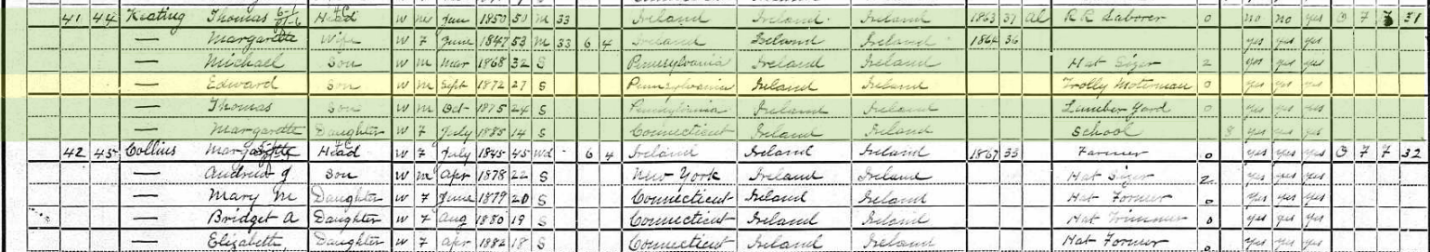 41 44 Keating Thomas Head W M Jan 1850 50 M 33 Ireland Ireland Ireland 1863 37 Al R R Laborer 0 no no yes O F 31
— Margarette Wife W F June 1847 53 M 33 6 4 Ireland Ireland Ireland 1864 36 yes yes yes
— Michael Son W M Mar 1868 32 S Pennsylvania Ireland Ireland Hat Sizer 2 yes yes yes
— Edward Son W M Sept 1872 27 S Pennsylvania Ireland Ireland Trolly Motorman 0 yes yes yes
— Thomas Son W M Oct 1875 24 S Pennsylvania Ireland Ireland Lumber Yard 0 yes yes yes
— Margarette Daughter W F July 1885 14 S Connecticut Ireland Ireland School 8 yes yes yes
42 45 Collins Head W F July 1845 45 Wd 6 4 Ireland Ireland Ireland 1867 33 Farmer 0 yes yes yes O F F 32
— Andrew J Son W M Apr 1878 22 S New York Ireland Ireland Hat Sizer 2 yes yes yes
— Mary M Daughter W F June 1879 20 S Connecticut Ireland Ireland Hat Former 0 yes yes yes
— Bridget A Daughter W F Aug 1880 19 S Connecticut Ireland Ireland Hat Trimmer 0 yes yes yes
— Elizabeth Daughter W F Apr 1882 18 S Connecticut Ireland Ireland Hat Former 0 yes yes yes